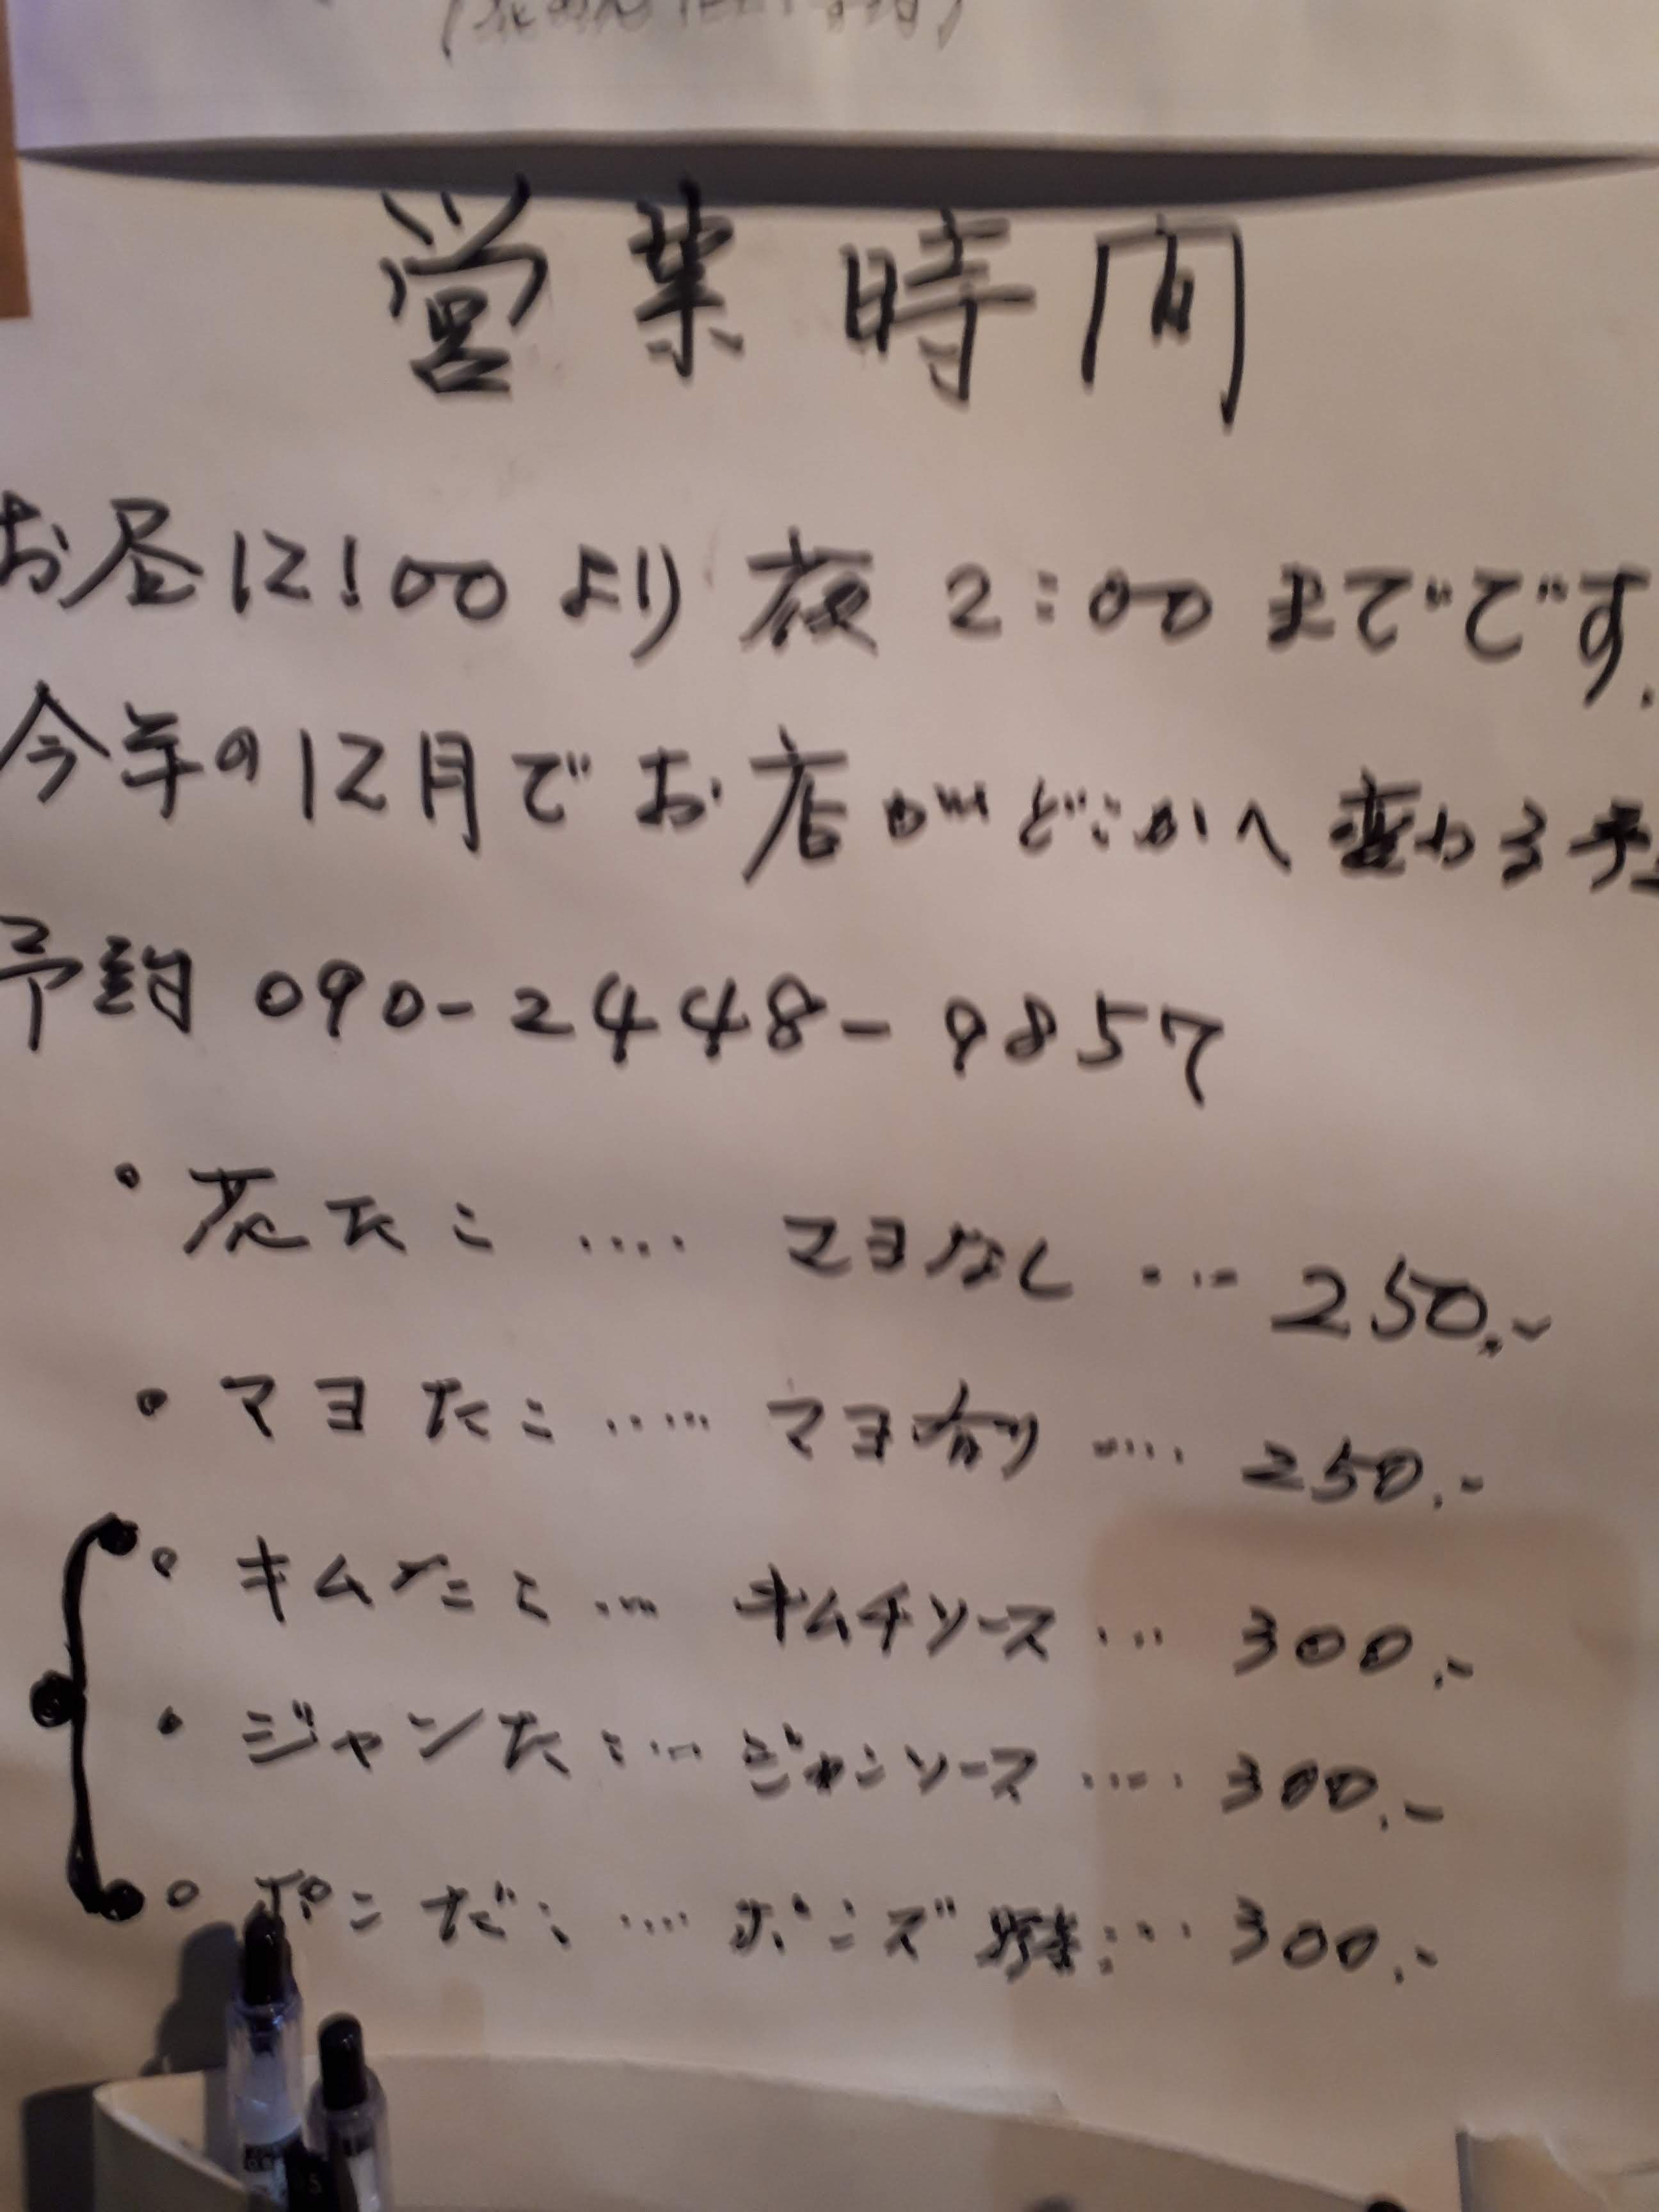 営業時間
お昼12:00より夜2:00までです.
今年の12月でお店がどこかへ変わる予
予約 090-2448-9857
・花たこ .... マヨなし ... 250.-
・マヨたこ ..... マヨ有り ..... 250.-
・キムたこ ... キムチソース ... 300.-
・ジャンたこ ... ジャンソース ..... 300.-
・ポンだこ .... ポンズ ... 300.-